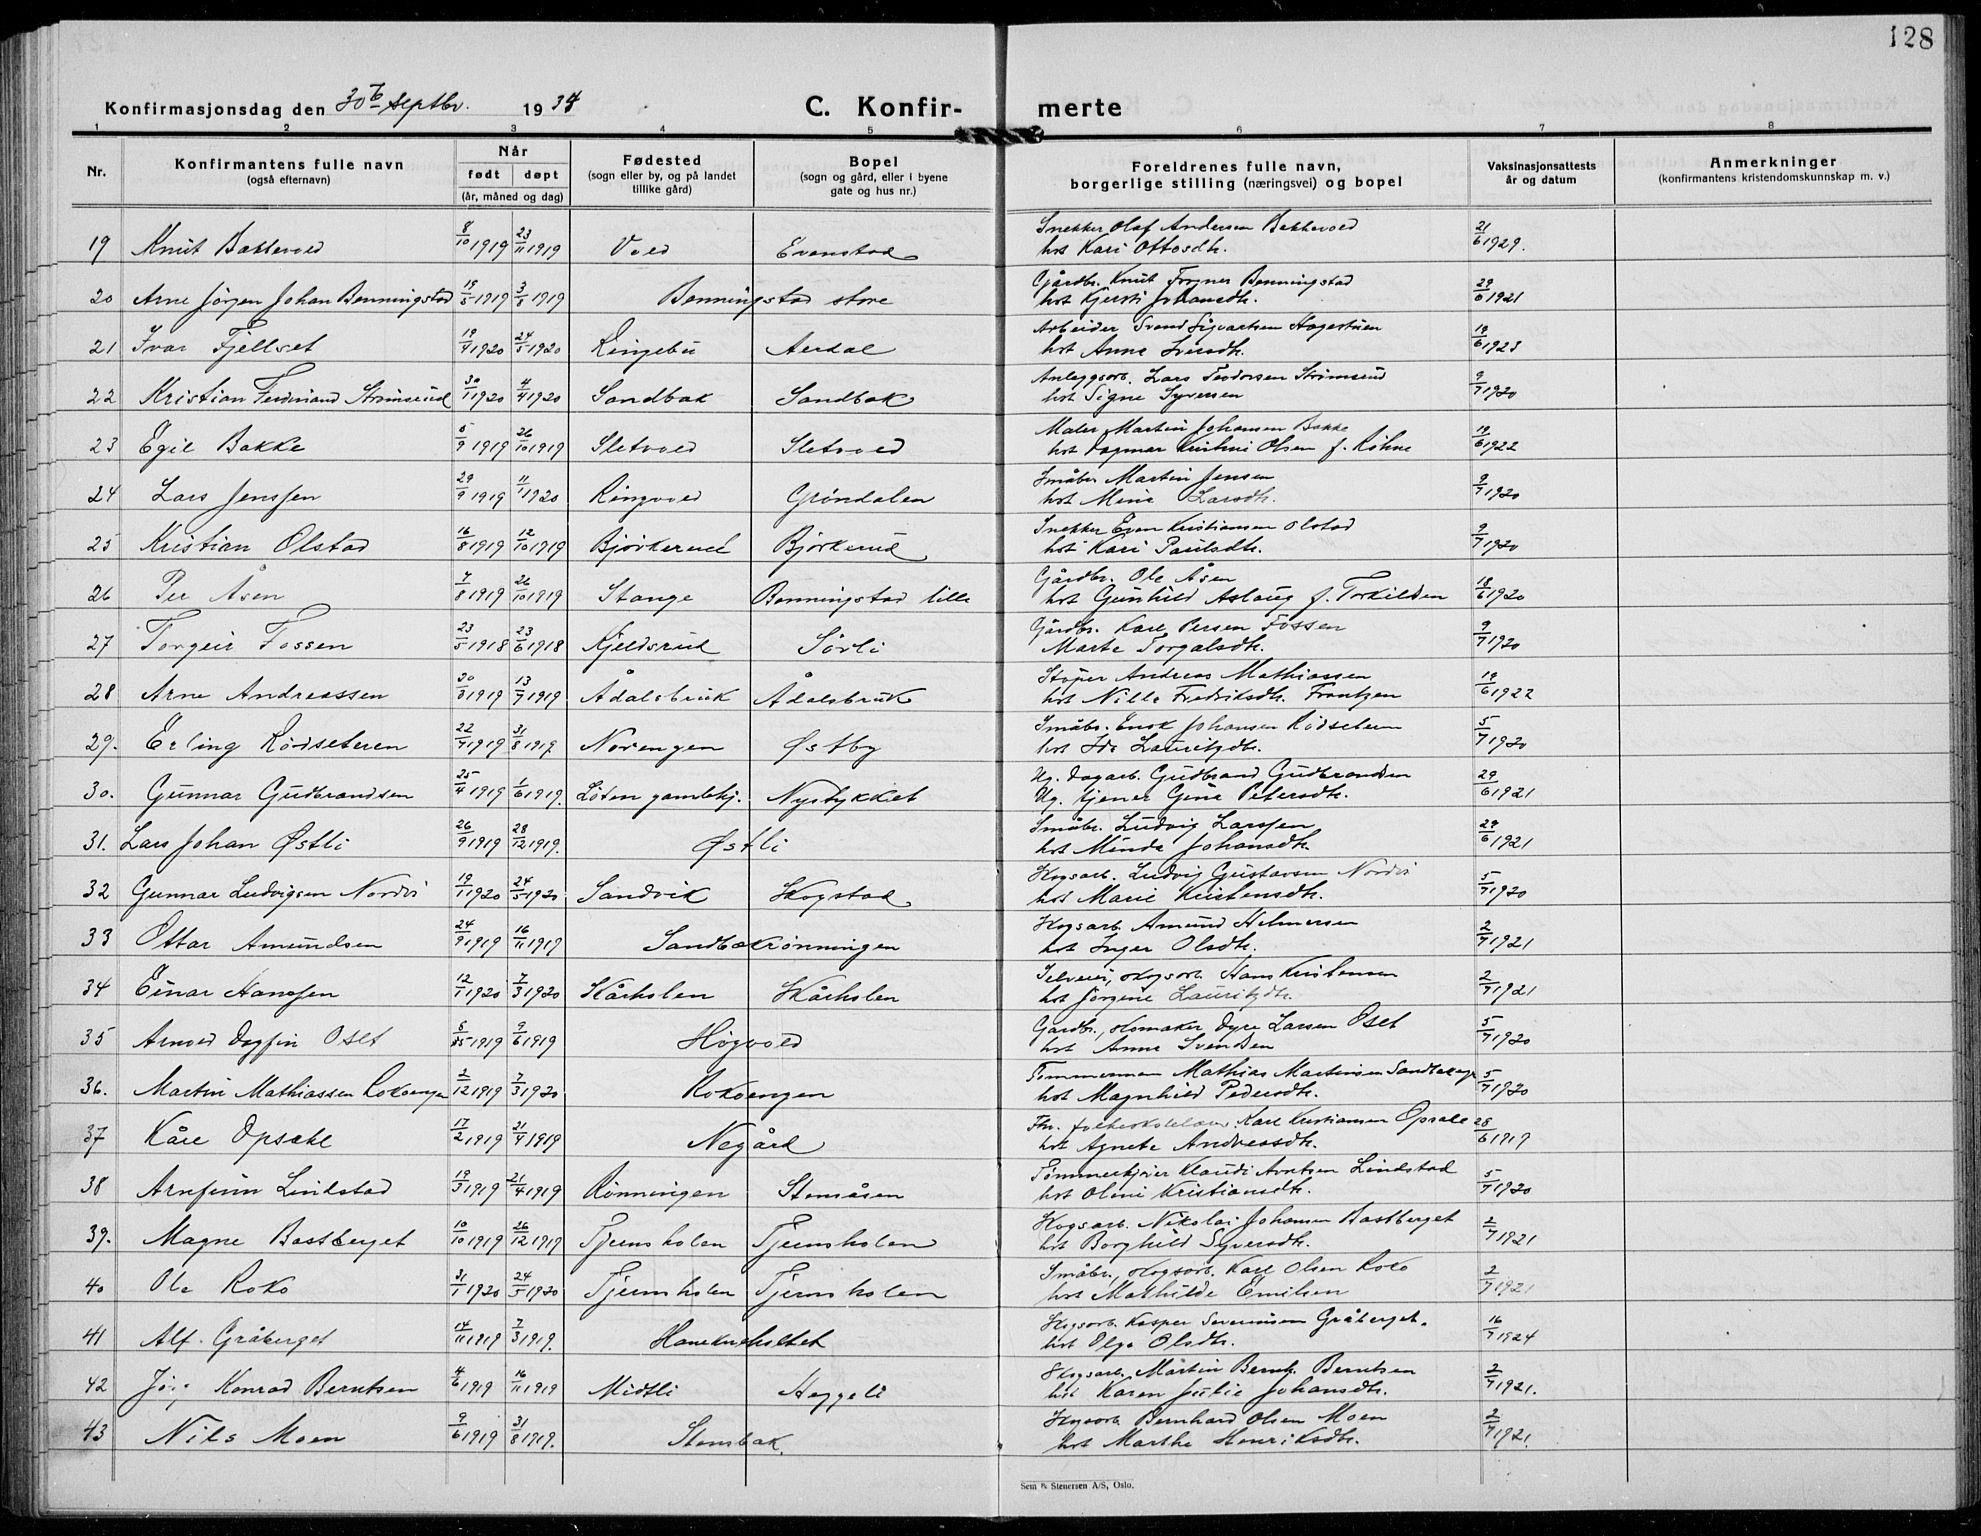 128
Konfirmasjonsdag den 30te Septbr. 1934 C. Konfir- merte
1 2 3 4 5 6 7 8
Nr. Konfirmantens fulle navn (også efternavn) Når født døpt (år, måned og dag) Fødested (sogn eller by, og på landet tillike gård) Bopel (sogn og gård, eller i byene gate og hus nr.) Foreldrenes fulle navn, borgerlige stilling (næringsvei) og bopel Vaksinasjonsattests år og datum Anmerkninger (konfirmantens kristendomskunnskap m. v.)
19 Knut Bakkevold 8/10 1919 23/11 1919 Vold Evenstad Snekker Olaf Andersen Bakkevold 21/6 1929.
hst Kari Ottosdtr.
20 Arne Jörgen Johan Bonningstad 19/5 1919 3/8 1919 Bonningstad store Gårdbr. Knut Bonningstad 29/6 1921
hst Kjersti Johansdtr.
21 Ivar Fjellset 19/4 1920 24/5 1920 Ringebu Aerdal Arbeider Svend Sigvartsen Hagestuen 19/6 1923
hst Anne Iversdtr.
22 Kristian Ferdinand Strömsrud 30/1 1920 4/4 1920 Sandbak Sandbak Anleggsarb. Lars Teodorsen Strömsrud 9/7 1920
hst Signe Syversen
23 Egil Bakke 5/9 1919 26/10 1919 Sletvold Sletvold Maler Martin Johansen Bakke 19/6 1922
hst Dagmar Kristine Olsen f. Röhne
24 Lars Jenssen 29/9 1919 11/1 1920 Ringvold Gröndalen Småbr Martin Jensen 9/7 1920
hst Mina Larsdtr.
25 Kristian Olstad 16/8 1919 12/10 1919 Björkerud Björkerud Snekker Even Kristiansen Olstad 9/7 1920
hst Kari Paulsdtr.
26 Per Åsen 7/8 1919 26/10 1919 Stange Bonningstad lille Gårdbr. Ole Åsen 18/6 1920
hst Gunhild Aslaug f. Torkildsen
27 Torgeir Fossen 23/5 1918 23/6 1918 Kjeldsrud Sörli Gårdbr. Karl Persen Fossen 9/7 1920
Marte Torgalsdtr.
28 Arne Andreassen 30/3 1919 13/7 1919 Ådalsbruk Ådalsbruk Stöper Andreas Mathiassen 19/6 1922
hst Nille Fredriksdtr. Frantzen
29. Erling Rödseteren 22/7 1919 31/8 1919 Norengen Østby Småbr. Enok Johansen Rödseteren 5/7 1920
hst Ida Lauritzdtr.
30. Gunnar Gudbrandsen 25/4 1919 1/6 1919. Löten gamlehj. Nystykket Ug. Dagarb. Gudbrand Gudbrandsen 29/6 1921
Ug. tjener Gina Petersdtr.
31. Lars Johan Østli 26/9 1919 28/12 1919. Østli Småbr. Ludvig Larssen 29/6 1921
hst Minda Johansdtr.
32 Gunnar Ludvigsen Nordvi 19/1 1920 24/5 1920 Sandvik Skogstad Skogsarb. Ludvig Gustavsen Nordvi 5/7 1920
hst Marie Kristensdtr.
33 Ottar Amundsen 24/9 1919 16/11 1919 Sandbakrönningen Skogsarb Amund Helmersen 2/7 1921
hst Inger Olsdtr.
34 Einar Hanssen 12/1 1920 7/3 1920 Skårholen Skårholen Selveier, skogsarb. Hans Kristensen 2/7 1921
hst Jörgine Lauritzdtr.
35 Arnold Dagfin Oset 5/5 1919 9/6 1919 Högvold Gårdbr., skomaker Dyre Larsen Oset 5/7 1920
hst Anna Svendsen
36. Martin Mathiassen Rokoengen 2/12 1919 7/3 1920 Rokoengen Tömmerman Mathias Martinsen Sandbakengen 5/7 1920
hst Magnhild Pedersdtr.
37 Kåre Opsahl 17/2 1919 21/4 1919 Negård Fhv. folkeskolelærer Karl Kristiansen Opsahl 28/6 1919
hst Agnete Andreasdtr.
38 Arnfinn Lindstad 19/3 1919 21/4 1919 Rönningen Stenåsen Tömmerkjörer Klaudi Arntsen Lindstad 5/7 1920
hst Oline Kristiansdtr.
39. Magne Bastberget 10/10 1919 26/12 1919 Tjernsholen Tjernsholen Skogsarb. Nikolai Johansen Bastberget 2/7 1921
hst Borghild Syversdtr.
40 Ole Roko 31/1 1920 24/5 1920 Tjernsholen Tjernsholen Småbr., skogsarb. Karl Olsen Roko 2/7 1921
hst Mathilde Emilsen
41 Alf. Gråberget 14/11 1919 7/3 1919. Hanekneholtet Skogsarb. Kasper Severinsen Gråberget. 16/7 1924
hst Olga Olsdtr.
42 Konrad Berntsen 4/6 1919 16/11 1919 Midtli Heggeli Skogsarb. Martin Bernh. Berntsen 2/7 1921.
hst Karen Julie Johansdtr.
43 Nils Moen 9/6 1919 31/8 1919. Stensbak. Skogsarb Bernhard Olsen Moen 2/7 1921.
hst Marthe Henriksdtr.
Sem & Stenersen A/S, Oslo.